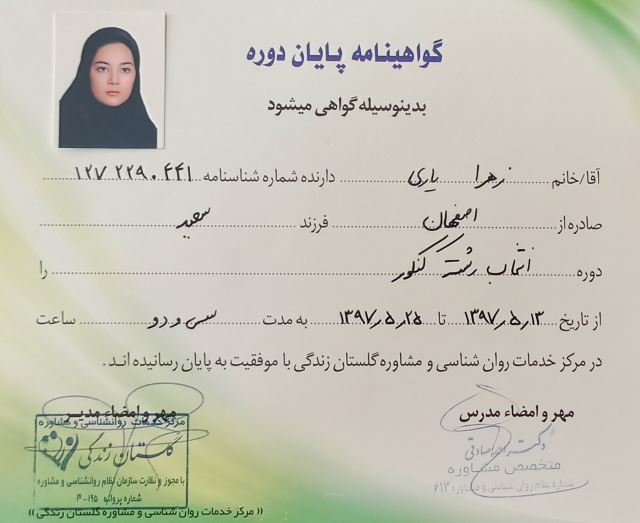 گواهینامه پایان دوره
بدینوسیله گواهی میشود
آقا/خانم زهرا یاری دارنده شماره شناسنامه ۱۲۷۲۲۹۰۴۴۱
صادره از اصفهان فرزند سعید
دوره انتخاب رشته کنکور را
از تاریخ ۱۳۹۷٫۵٫۱۳ تا ۱۳۹۷٫۵٫۲۵ به مدت سی و دو ساعت
در مرکز خدمات روان شناسی و مشاوره گلستان زندگی با موفقیت به پایان رسانیده اند.
مهر و امضاء مدرس
مهر و امضاء مدیر
دکتر صادقی
متخصص مشاوره
شماره نظام روان شناسی و مشاوره ۶۱۲
مرکز خدمات روانشناسی و مشاوره
گلستان زندگی
با مجوز و نظارت سازمان نظام روانشناسی و مشاوره
شماره پروانه ۱۹۵-۴
(( مرکز خدمات روان شناسی و مشاوره گلستان زندگی ))